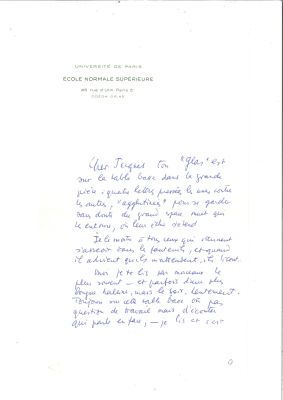 UNIVERSITÉ DE PARIS
ÉCOLE NORMALE SUPÉRIEURE
45 rue d'Ulm Paris 5
Cher Jacques ton "glas" est
sur la table basse dans la grande
pièce : quatre lettres pressées les unes contre
les autres, "agglutinées" pour se garder
sans doute du grand espace muet qui
les entoure, où leur écho s'étend
Je le montre à tous ceux qui viennent
s'asseoir dans le et quand
il advient qu'ils m'attendent, ils lisent.
Moi je te lis par morceaux le
plus souvent — et parfois d'une plus
longue haleine, mais le soir, lentement.
Toujours sur cette table basse où pas
question de travail mais d'écouter
qui parle en face, — je lis et c'est